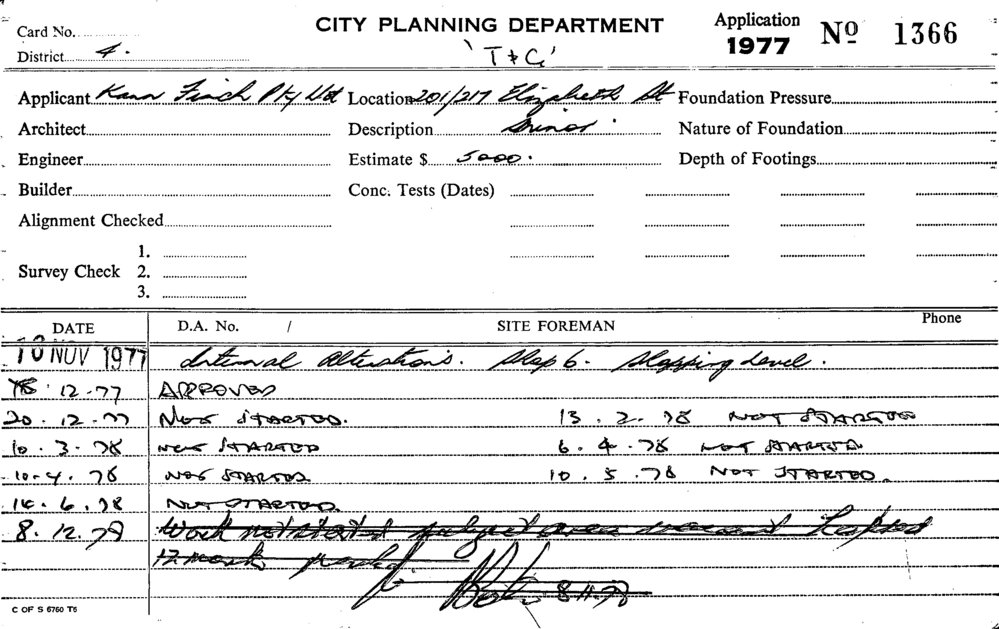 Card No. CITY PLANNING DEPARTMENT Application 1977 Nº 1366
District 4. 'T & G'
Applicant Kann Finch Pty Ltd Location 201/217 Elizabeth St Foundation Pressure
Architect Description Minor Nature of Foundation
Engineer Estimate $ 5000. Depth of Footings
Builder Conc. Tests (Dates)
Alignment Checked
1.
Survey Check 2.
3.
DATE D.A. No. / SITE FOREMAN Phone
10 NOV 1977 Internal Alterations. Shop 6. Shopping Level.
12.77 APPROVED
20.12.77 NOT STARTED. 13.2.78 NOT STARTED
10.3.78 NOT STARTED 6.4.78 NOT STARTED
10.4.78 NOT STARTED 10.5.78 NOT STARTED.
14.6.78 NOT STARTED
8.12.78 Work not started subject area vacant Lapsed
12 month period.
8.11.78
C OF S 6760 T5